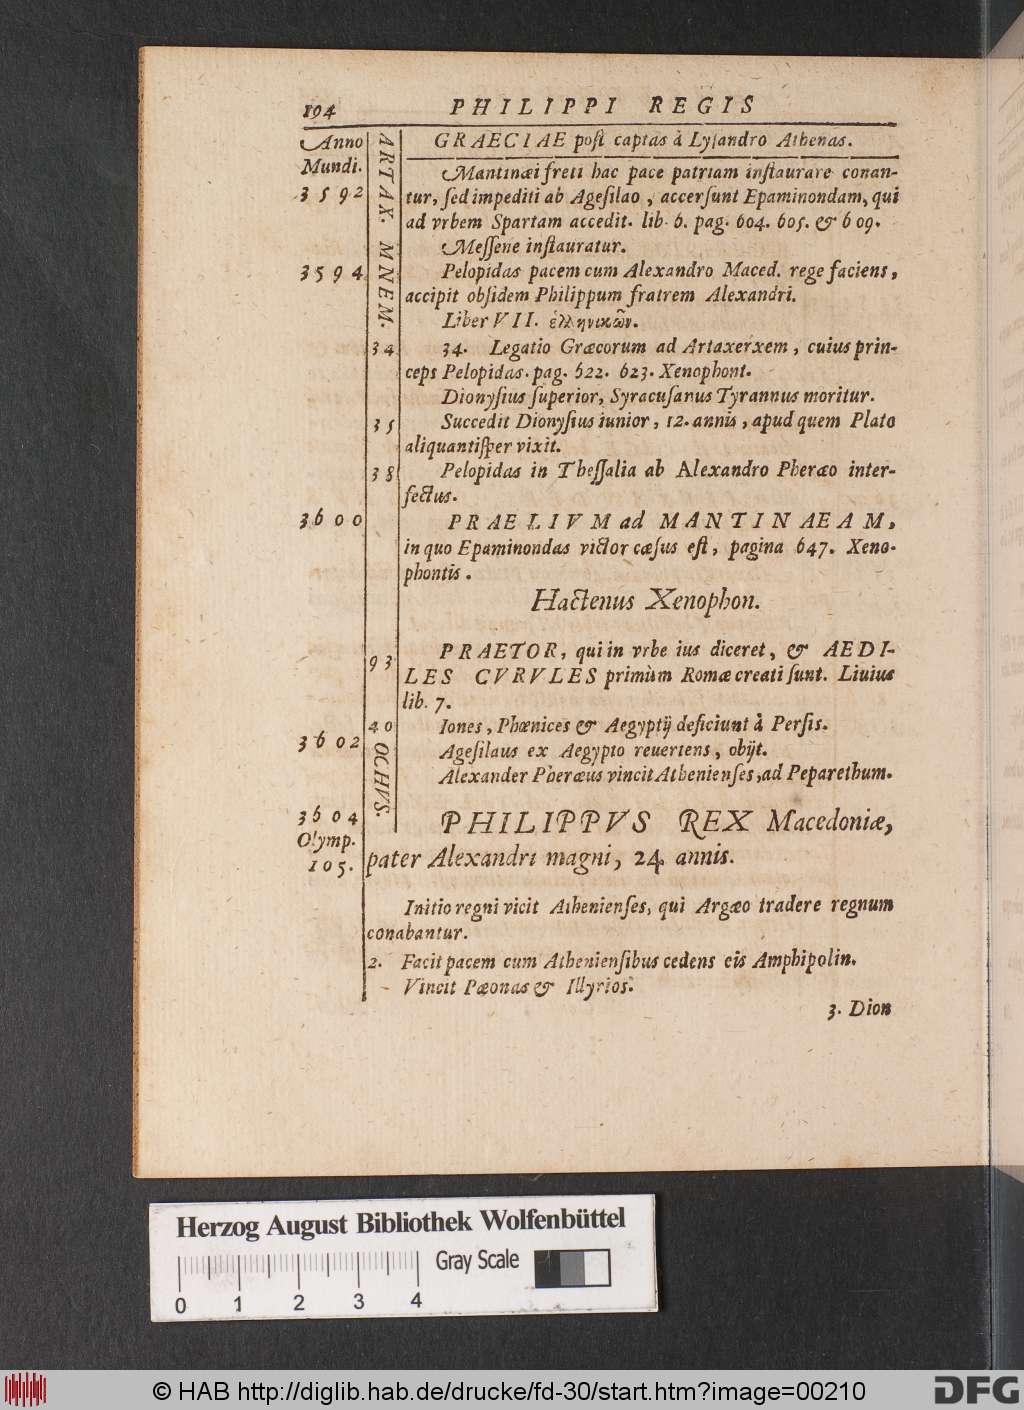 194 PHILIPPI REGIS
Anno GRAECIAE post captas à Lysandro Athenas.
Mundi. Mantinæi freti hac pace patriam instaurare conan-
3592 tur, sed impediti ab Agesilao, accersunt Epaminondam, qui
ad vrbem Spartam accedit. lib. 6. pag. 604. 605. & 609.
Messene instauratur.
3594 Pelopidas pacem cum Alexandro Maced. rege faciens,
accipit obsidem Philippum fratrem Alexandri.
Liber VII. ἑλληνικῶν.
34 34. Legatio Græcorum ad Artaxerxem, cuius prin-
ceps Pelopidas. pag. 622. 623. Xenophont.
Dionysius superior, Syracusanus Tyrannus moritur.
35 Succedit Dionysius iunior, 12. annis, apud quem Plato
aliquantisper vixit.
38 Pelopidas in Thessalia ab Alexandro Pheræo inter-
fectus.
3600 PRAELIVM ad MANTINAEAM,
in quo Epaminondas victor cæsus est, pagina 647. Xeno-
phontis.
Hactenus Xenophon.
93 PRAETOR, qui in vrbe ius diceret, & AEDI-
LES CVRVLES primùm Romæ creati sunt. Liuius
lib. 7.
40 Iones, Phœnices & Aegyptij deficiunt à Persis.
3602 Agesilaus ex Aegypto reuertens, obijt.
Alexander Pheræus vincit Athenienses, ad Peparethum.
ARTAX. MNEM.
OCHVS.
3604 PHILIPPVS REX Macedoniæ,
Olymp.
105. pater Alexandri magni, 24 annis.
Initio regni vicit Athenienses, qui Argæo tradere regnum
conabantur.
2. Facit pacem cum Atheniensibus cedens eis Amphipolin.
Vincit Pæonas & Illyrios.
3. Dion
Herzog August Bibliothek Wolfenbüttel
Gray Scale
0 1 2 3 4
© HAB http://diglib.hab.de/drucke/fd-30/start.htm?image=00210
DFG